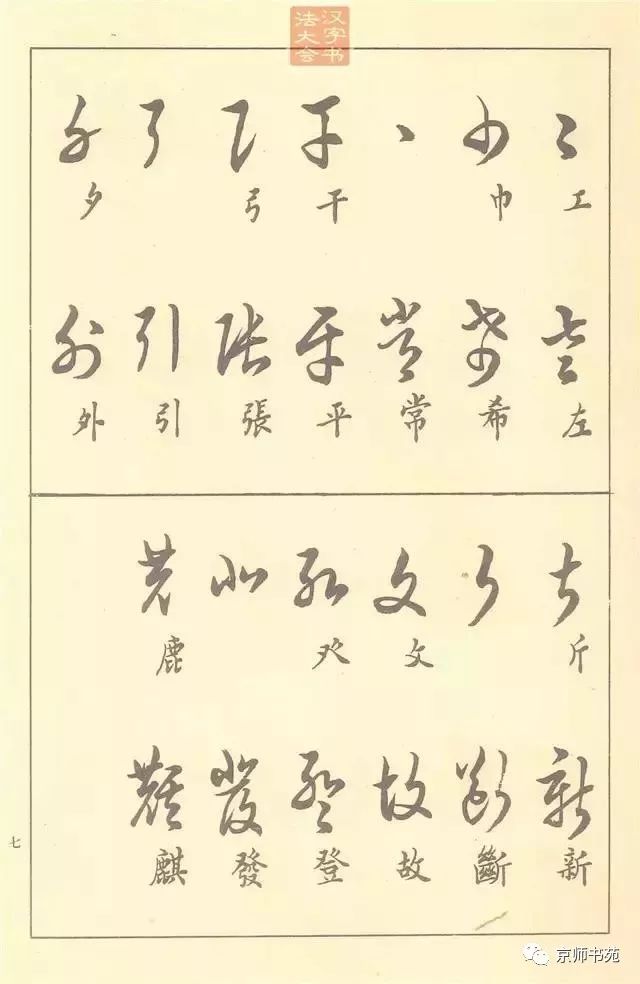 汉字书
法大会
工 巾 干 弓 夕
左 希 常 平 張 引 外
斤 攵 癶 鹿
新 斷 故 登 發 麒
七
京师书苑